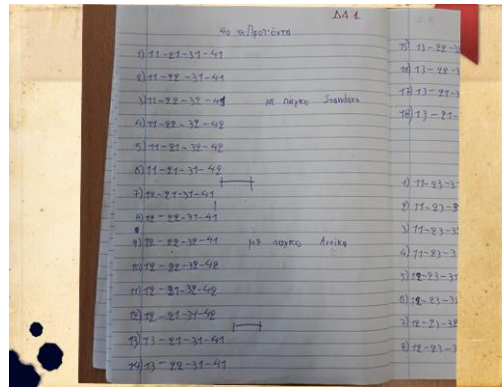 ΔΛ 1
4ο τε Προτεντα
1) 11-21-31-41
2) 11-22-31-41
3) 11-22-32-41 με πάγκο Standard
4) 11-22-32-42
5) 11-21-32-42
6) 11-21-31-42
7) 12-21-31-41
8) 12-22-31-41
9) 12-22-32-41 με παγκο Αντίκα
10) 12-22-32-42
11) 12-21-32-42
12) 12-21-31-42
13) 13-21-31-41
14) 13-22-31-41
15) 13-22-3
16) 13-22-3
17) 13-21-3
18) 13-21-
1) 11-23-3
2) 11-23-3
3) 11-23-32
4) 11-23-3
5) 12-23-31
6) 12-23-3
7) 12-23-32
8) 12-23-3